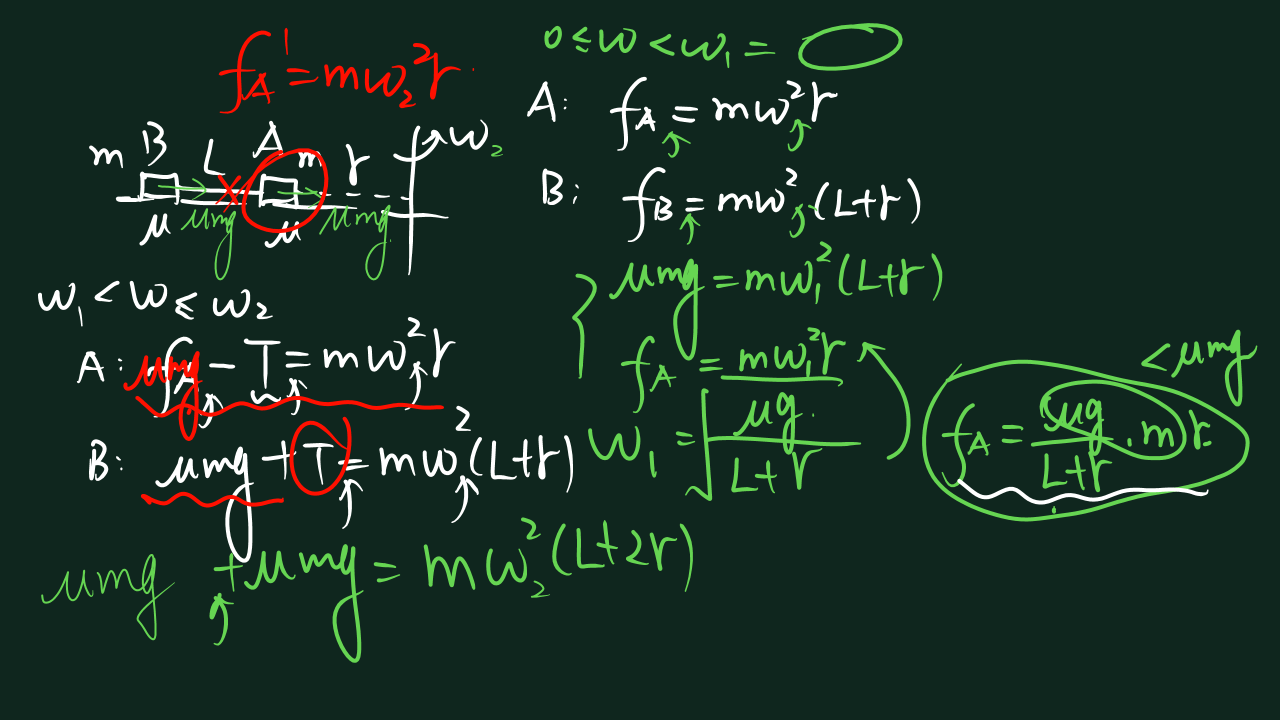 f_A' = mω₂²r
m B L A m r ω₂
μmg μmg
μ μ
ω₁ < ω ≤ ω₂
A: μmg - T = mω²r
B: μmg + T = mω²(L+r)
μmg + μmg = mω₂²(L+2r)
0 ≤ ω < ω₁ =
A: f_A = mω²r
B: f_B = mω²(L+r)
μmg = mω₁²(L+r)
f_A = mω₁²r
ω₁ = √(μg/(L+r))
< μmg
f_A = μg/(L+r) · m r